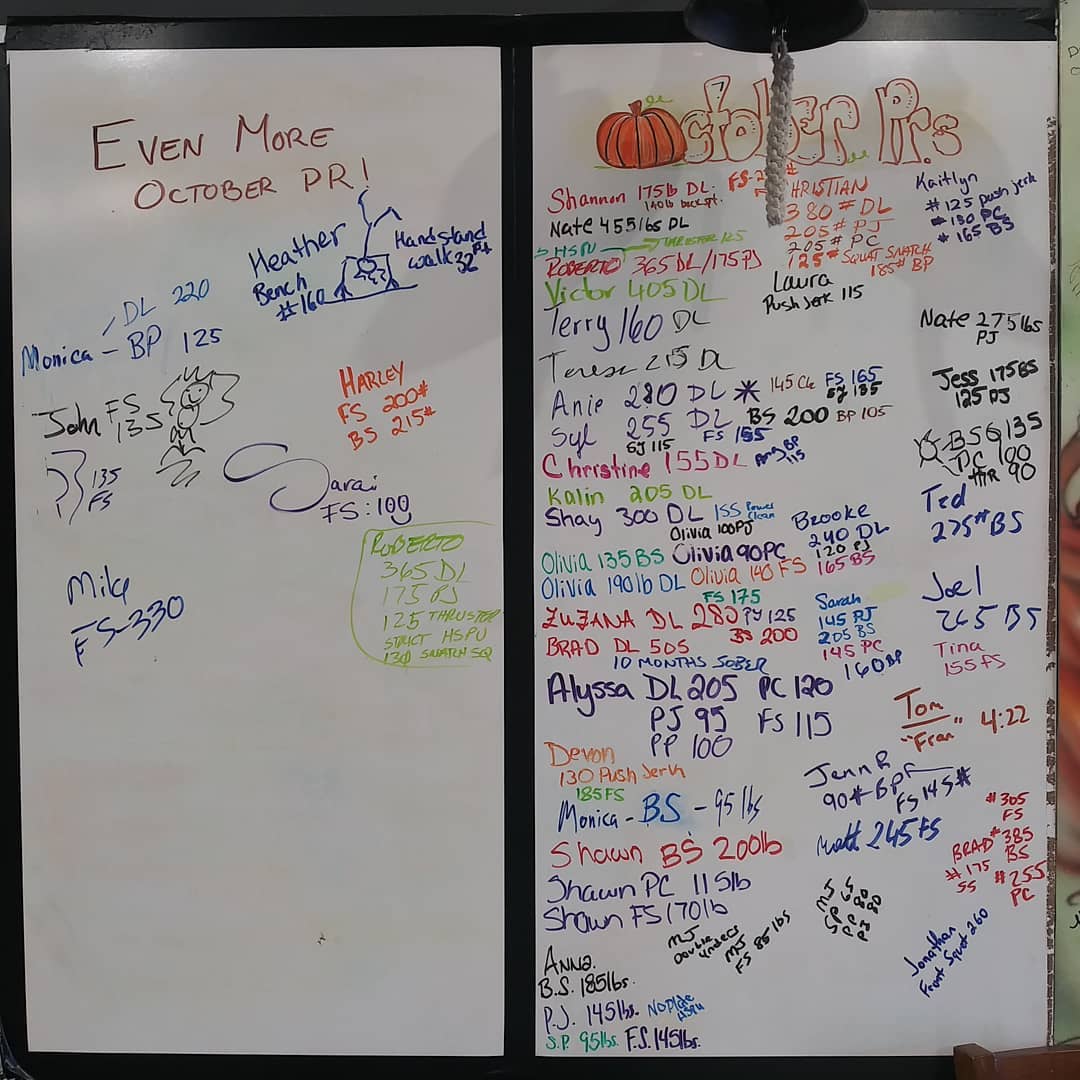 EVEN MORE
OCTOBER PR!
Heather
Bench
#160
Handstand
walk 32 Ft
Monica - DL 220
BP 125
John FS
135
135
FS
HARLEY
FS 200#
BS 215#
Sarai
FS: 100
Mike
FS-330
ROBERTO
365 DL
175 PJ
125 THRUSTER
STRICT HSPU
130 SNATCH SQ
OctobER PR.s
Shannon 175lb DL.
140lb
FS-
Nate 455lbs DL
HSPU
THRUSTER 125
ROBERTO 365 DL/175PJ
Victor 405 DL
Terry 160 DL
215 DL
Anie 280 DL * 145 Cle FS 165
SJ 135
Syl 255 DL BS 200 BP 105
SJ 115 FS 155
Christine 155 DL
BP
115
Kalin 205 DL
Shay 300 DL 155 Power
Clean
Olivia 100PJ
Olivia 135 BS Olivia 90PC
Olivia 190lb DL Olivia 140 FS
FS 175
ZUZANA DL 280 PJ 125
BS 200
BRAD DL 505
10 MONTHS SOBER
Alyssa DL 205 PC 120
PJ 95 FS 115
PP 100
Devon
130 Push Jerk
185 FS
Monica - BS - 95 lbs
Shawn BS 200lb
Shawn PC 115lb
Shawn FS 170lb
MJ
Double
Unders
MJ
FS 85 lbs
ANNA.
B.S. 185lbs.
P.J. 145lbs. No Plate
HSPU
S.P. 95lbs. F.S. 145lbs.
HRISTIAN
380 # DL
205 # PJ
205 # PC
125 # SQUAT SNATCH
185# BP
Laura
Push Jerk 115
Kaitlyn
# 125 push jerk
# 130 PC
# 165 BS
Nate 275lbs
PJ
Jess 175 BS
125 PJ
135
PC 100
90
Ted
275# BS
Brooke
240 DL
120 PJ
165 BS
Sarah
145 PJ
205 BS
145 PC
160 BP
Joel
265 BS
Tina
155 FS
Tom
"Fran" 4:22
Jenn R
90# BP
FS 145#
Matt 245 FS
#305
FS
BRAD #385
BS
#175
SS
#255
PC
Jonathan
Front Squat 260